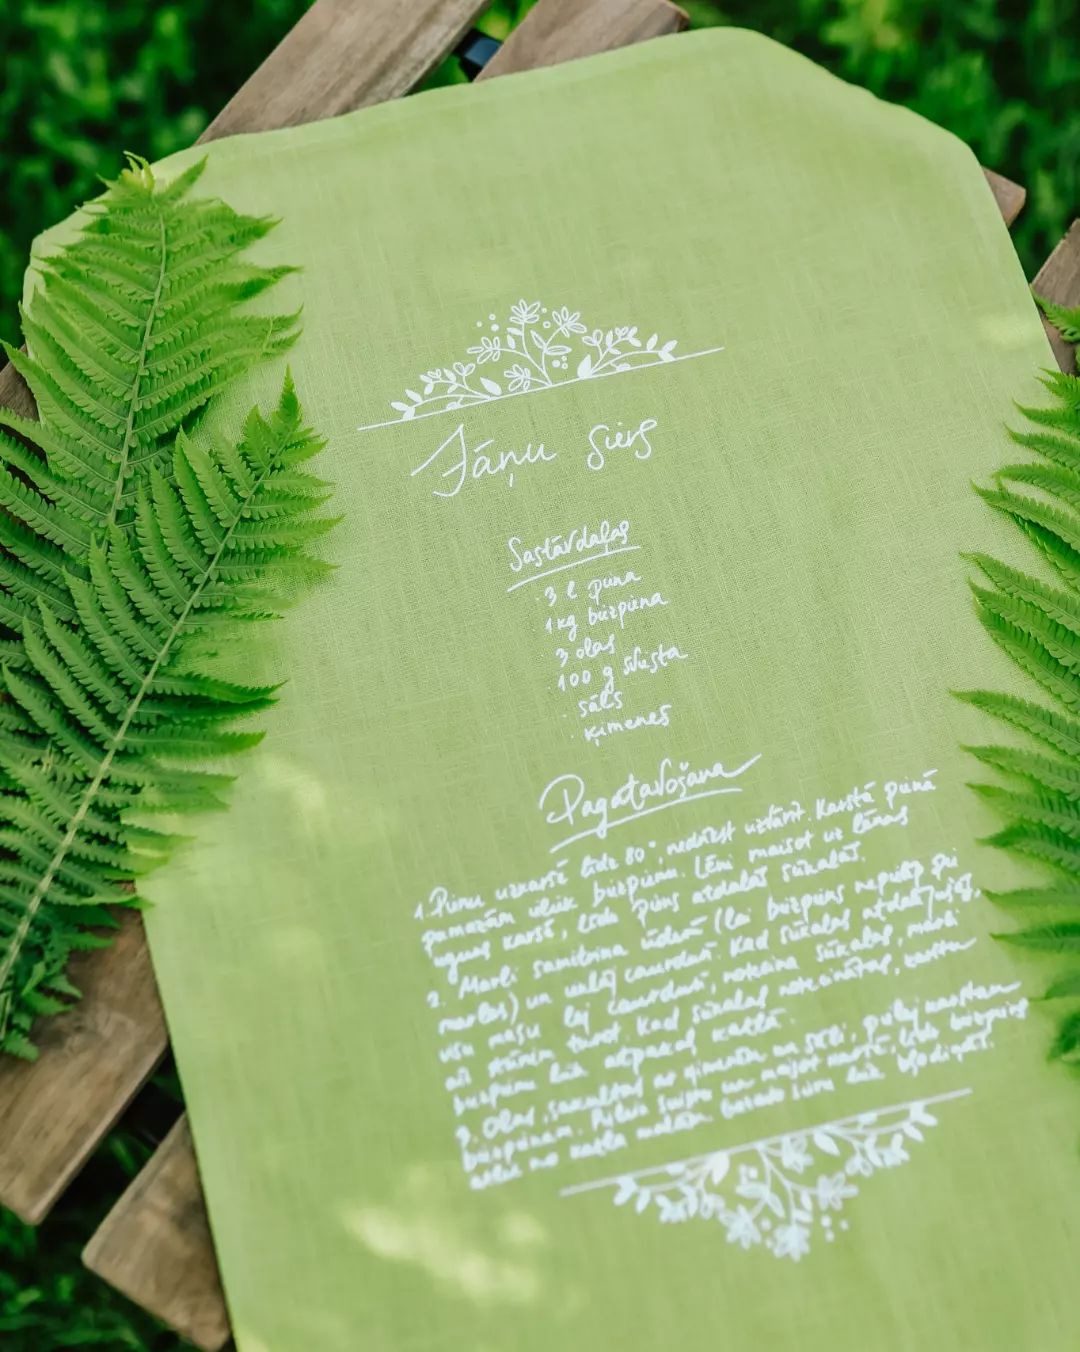 Jāņu siers
Sastāvdaļas
· 3 l piena
· 1 kg biezpiena
· 3 olas
· 100 g sviesta
· sāls
· ķimenes
Pagatavošana
1. Pienu uzkarsē līdz 80°, nedrīkst uzvārīt. Karstā pienā
pamazām ieliek biezpienu. Lēni maisot uz lēnas
uguns karsē, līdz piens atdalās sūkalas.
2. Marli samitrina ūdenī (lai biezpiens nepielīp pie
marles) un uzklāj caurdurī. Kad sūkalas atdalījušās,
visu masu lej caurdurī, notecina sūkalas, marli
aiz stūriem turot. Kad sūkalas notecinātas, karstu
biezpienu liek atpakaļ katlā.
3. Olas, sakultas ar ķimenēm un sāli, pielej karstam
biezpienam. Pieliek sviestu un maisot karsē, līdz biezpiens
atlec no katla malām. Gatavo sieru liek